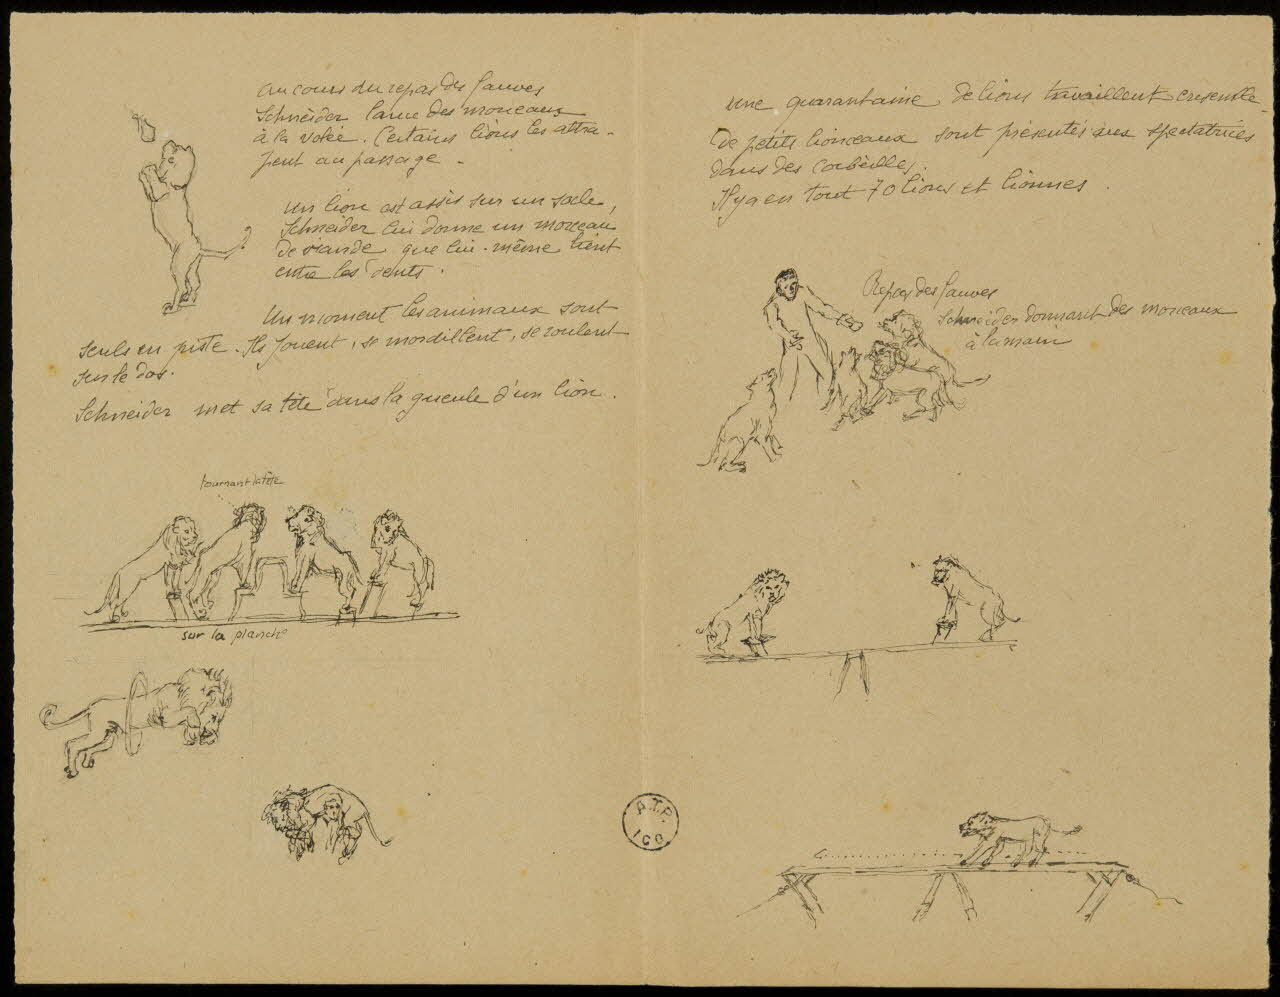 au cours du repas des fauves
Schneider lance des morceaux
à la volée. Certains lions les attra-
pent au passage.
Un lion est assis sur un socle,
Schneider lui donne un morceau
de viande que lui-même tient
entre les dents.
Un moment les animaux sont
seuls en piste. Ils jouent, se mordillent, se roulent
sur le dos.
Schneider met sa tête dans la gueule d'un lion.
tournant la tête
sur la planche
une quarantaine de lions travaillent ensemble.
De petits lionceaux sont présentés aux spectatrices
dans des corbeilles.
Il y a en tout 70 lions et lionnes.
Repas des fauves
Schneider donnant des morceaux
à la main
A.T.P.
ICO